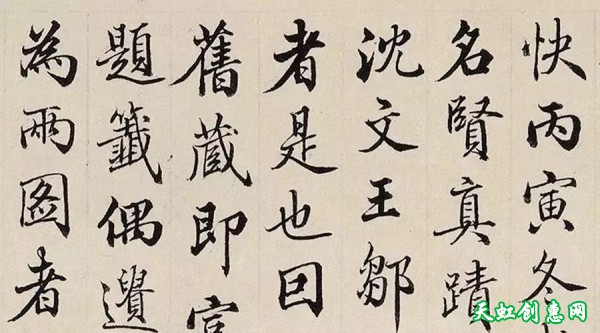 快丙寅冬
名賢真蹟
沈文王鄒
者是也回
舊藏即
題籤偶遺
為兩圖者
天虹创惠网